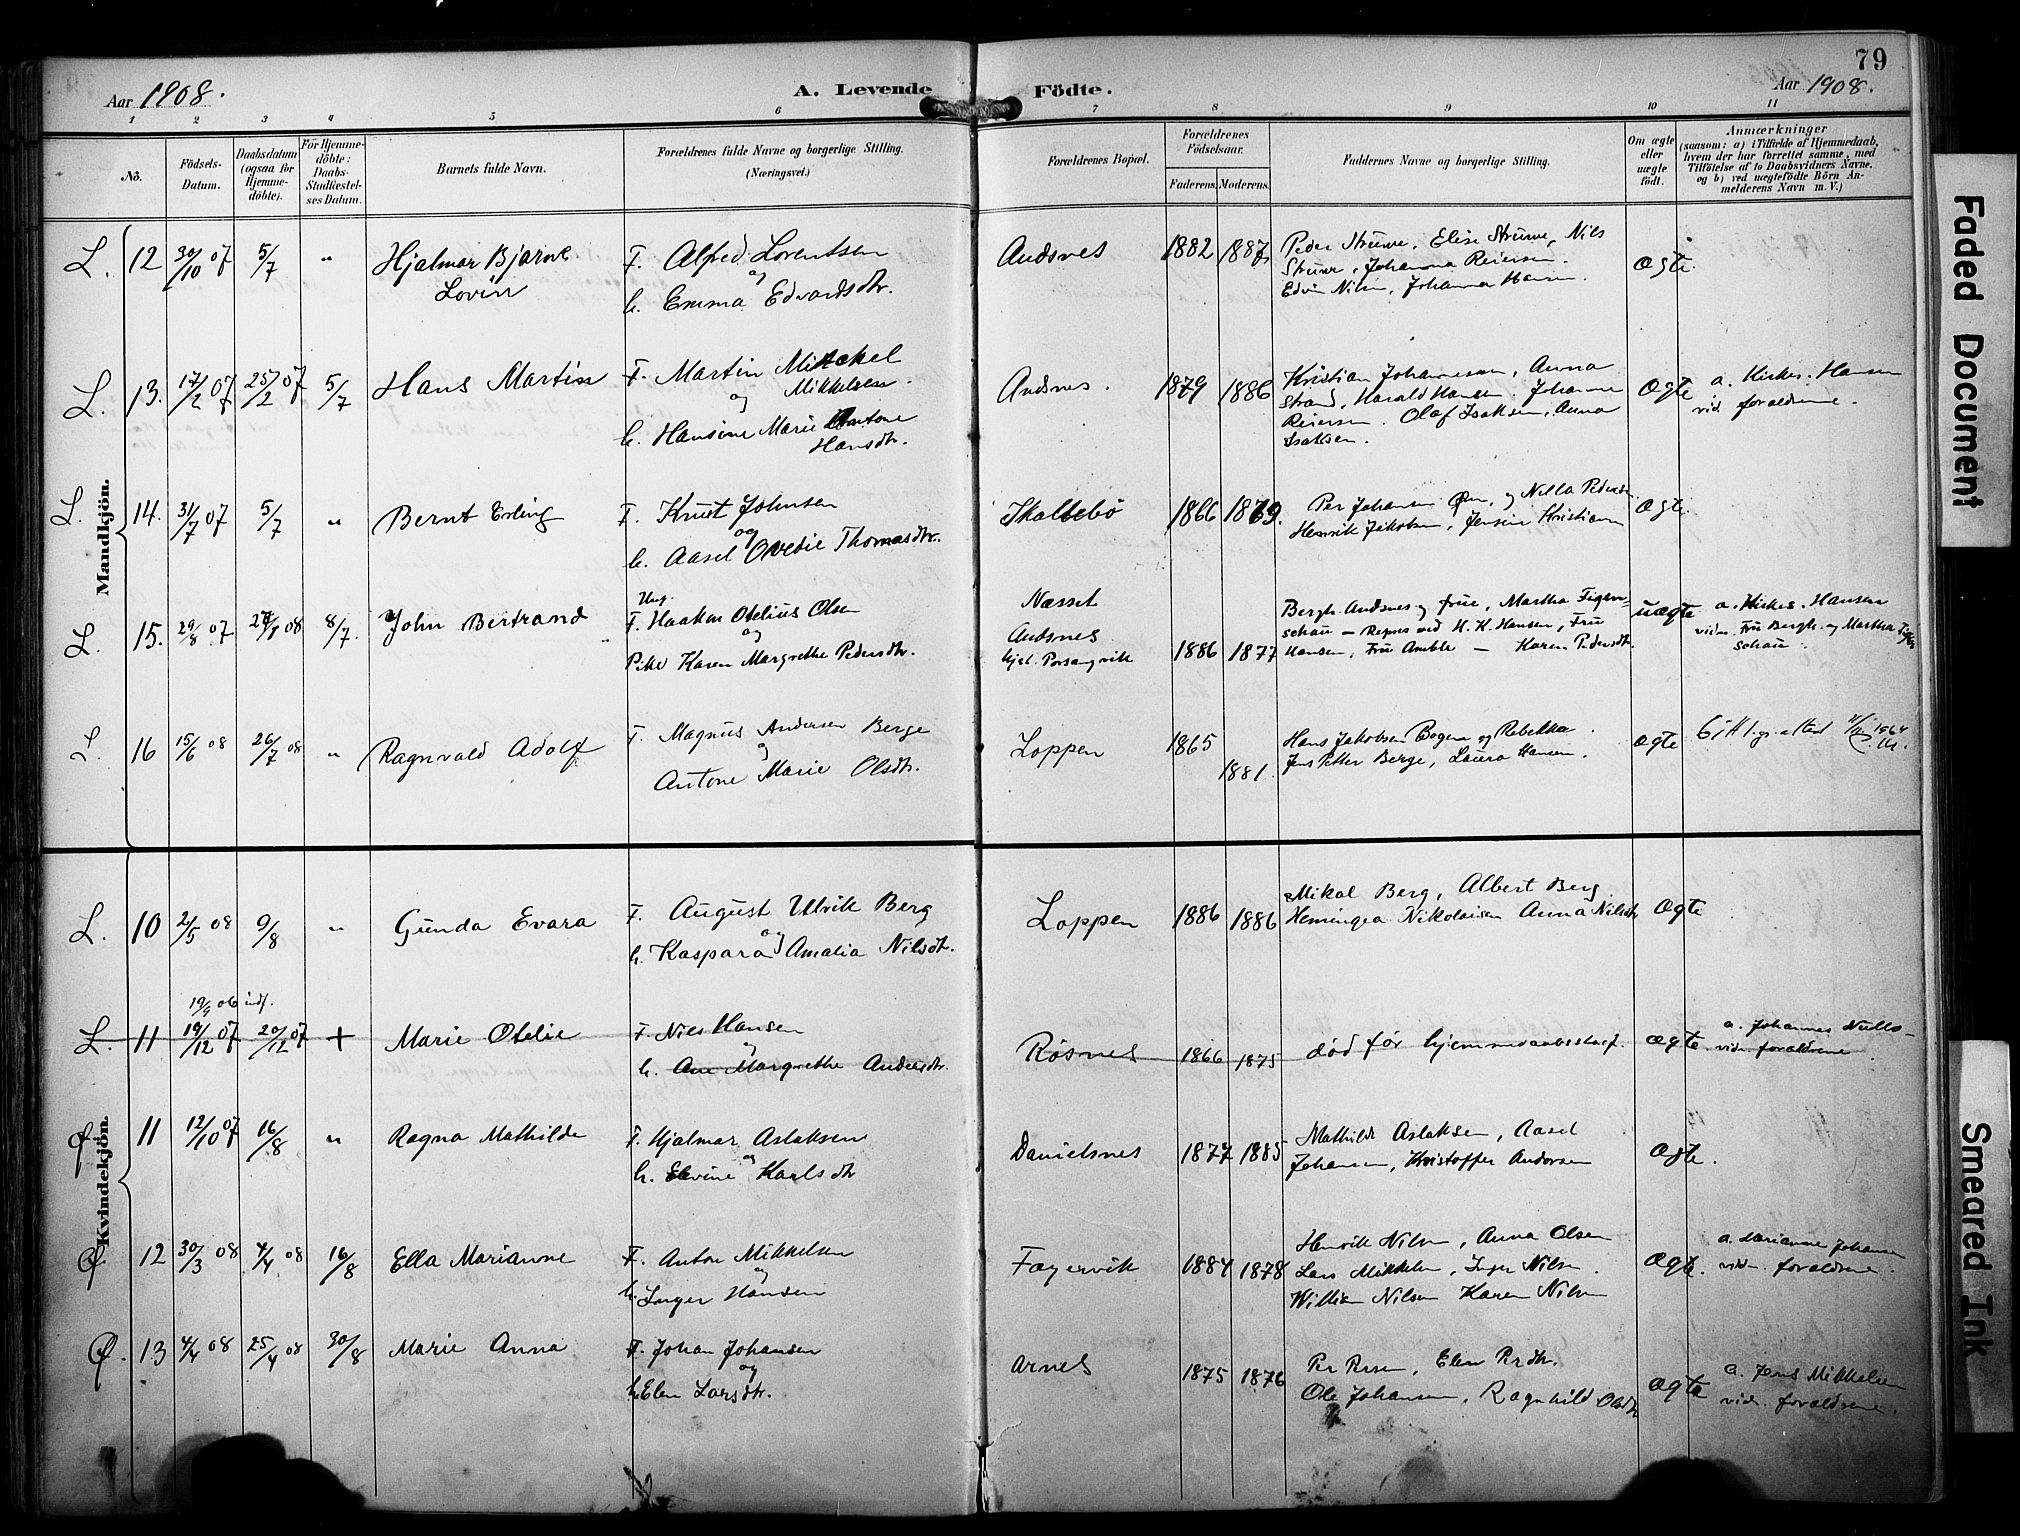 79
Aar 1908.
A. Levende Födte.
Aar 1908.
1 2 3 4 5 6 7 8 9 10 11
No.
Födsels-Datum.
Daabsdatum (ogsaa for Hjemmedöbte).
För Hjemmedöbte: Daabs-Stadfæstelses Datum.
Barnets fulde Navn.
Forældrenes fulde Navne og borgerlige Stilling.
(Næringsvei.)
Forældrenes Bopæl.
Forældrenes Födselsaar.
Faderens. Moderens.
Faddernes Navne og borgerlige Stilling.
Om ægte eller uægte födt.
Anmærkninger
(saasom: a) i Tilfælde af Hjemmedaab, hvem der har forrettet samme, med Tilföielse af to Daabsvidners Navne, og b) ved uægtefödte Börn Anmelderens Navn m. V.)
Mandkjön.
L. 12 30/10 07 5/7 " Hjalmar Bjarne Lovin
F. Alfred Lorentsen
og
h. Emma Edvardsdtr.
Andsnes 1882 1887
Peder Struwe, Elise Struwe, Nils
Struwe, Johanna Reiersen.
Edvin Nilsen, Johanna Hansen.
ægte.
L. 13. 17/2 07 25/2 07 5/7 Hans Martin
F. Martin Mikkel
Mikkelsen.
og
h. Hansine Marie Antone
Hansdtr.
Andsnes. 1879 1886
Kristian Johannesen, Anna
Strand, Harald Hansen. Johanne
Reiersen. Olaf Isaksen, Anna
Isaksen.
ægte
a. Kirkes. Hansen
vid. forældrene.
L. 14. 31/7 07 5/7 " Bernt Erling
F. Knut Johnsen
og
h. Aasel Ovedie Thomasdtr.
Skaltebö 1866 1869.
Per Johansen Øen, og Nella Pedersen
Henrik Jakobsen, Jensine Kristiansen
ægte.
L. 15. 29/8 07 08 8/7. John Bertrand
Ung.
F. Haakon Otelius Olsen
og
Pike Karen Margrethe Pedersdtr.
Næsset
Andsnes
hjel. Porsangvik
1886 1877
Bergh Andsnes og frue, Martha Figen-
schau – Repres ved H. K. Hansen, Fru
Hansen, Fru Amble – Karen Pedersdtr.
uægte
a. Kirkes. Hansen
vidn. Fru Bergh. og Martha Figen
schau
L. 16 15/6 08 26/7 08 " Ragnvald Adolf
F. Magnus Andersen Berge
og
Antone Marie Olsdtr.
Loppen 1865 1881.
Hans Jakobsen Bogen og Rebekka.
Jens Petter Berge, Laura Hansen.
ægte
1964
Kvindekjön.
L. 10 2/5 08 9/8 " Gunda Evara
F. August Ulrik Berg
og
h. Kaspara Amalia Nilsdtr.
Loppen 1886 1886
Mikal Berg, Albert Berg
Hemingea Nikolaisen Anna Nilsdtr
ægte
19/9 06 indf.
L. 11 19/12 07 20/12 07 + Marie Otelie
F. Nils Hansen
og
h. Ane Margrethe Andersdtr.
Røsnes 1866 1875
død før hjemmedaabsstadf.
ægte
a. Johannes
vidn. forældrene.
Ø 11 12/10 07 16/8 " Ragna Mathilde
F. Hjalmar Aslaksen
og
h. Elevine Karlsdtr
Danielsnes 1877 1885
Mathilde Aslaksen, Aasel
Johansen, Kristoffer Andersen
ægte.
Ø 12 30/3 08 4/4 08 16/8 Ella Marianne
F. Anton Mikkelsen
og
h. Inger Hansen
Fagervik 1884 1878
Henrik Nilsen, Anna Olsen
Lars Mikkelsen, Inger Nilsen.
William Nilsen Karen Nilsen
ægte.
a. Marianne Johansen
vidn. forældrene.
Ø. 13 4/4 08 25/4 08 30/8 Marie Anna
F. Johan Johansen
og
h. Elen Larsdtr.
Arnes 1875 1876
Per Persen, Elen Perdtr.
Ole Johansen, Ragnhild Olsdtr
ægte
a. Jens Mikkelsen
vidn. forældrene.
Faded Document
Smeared Ink